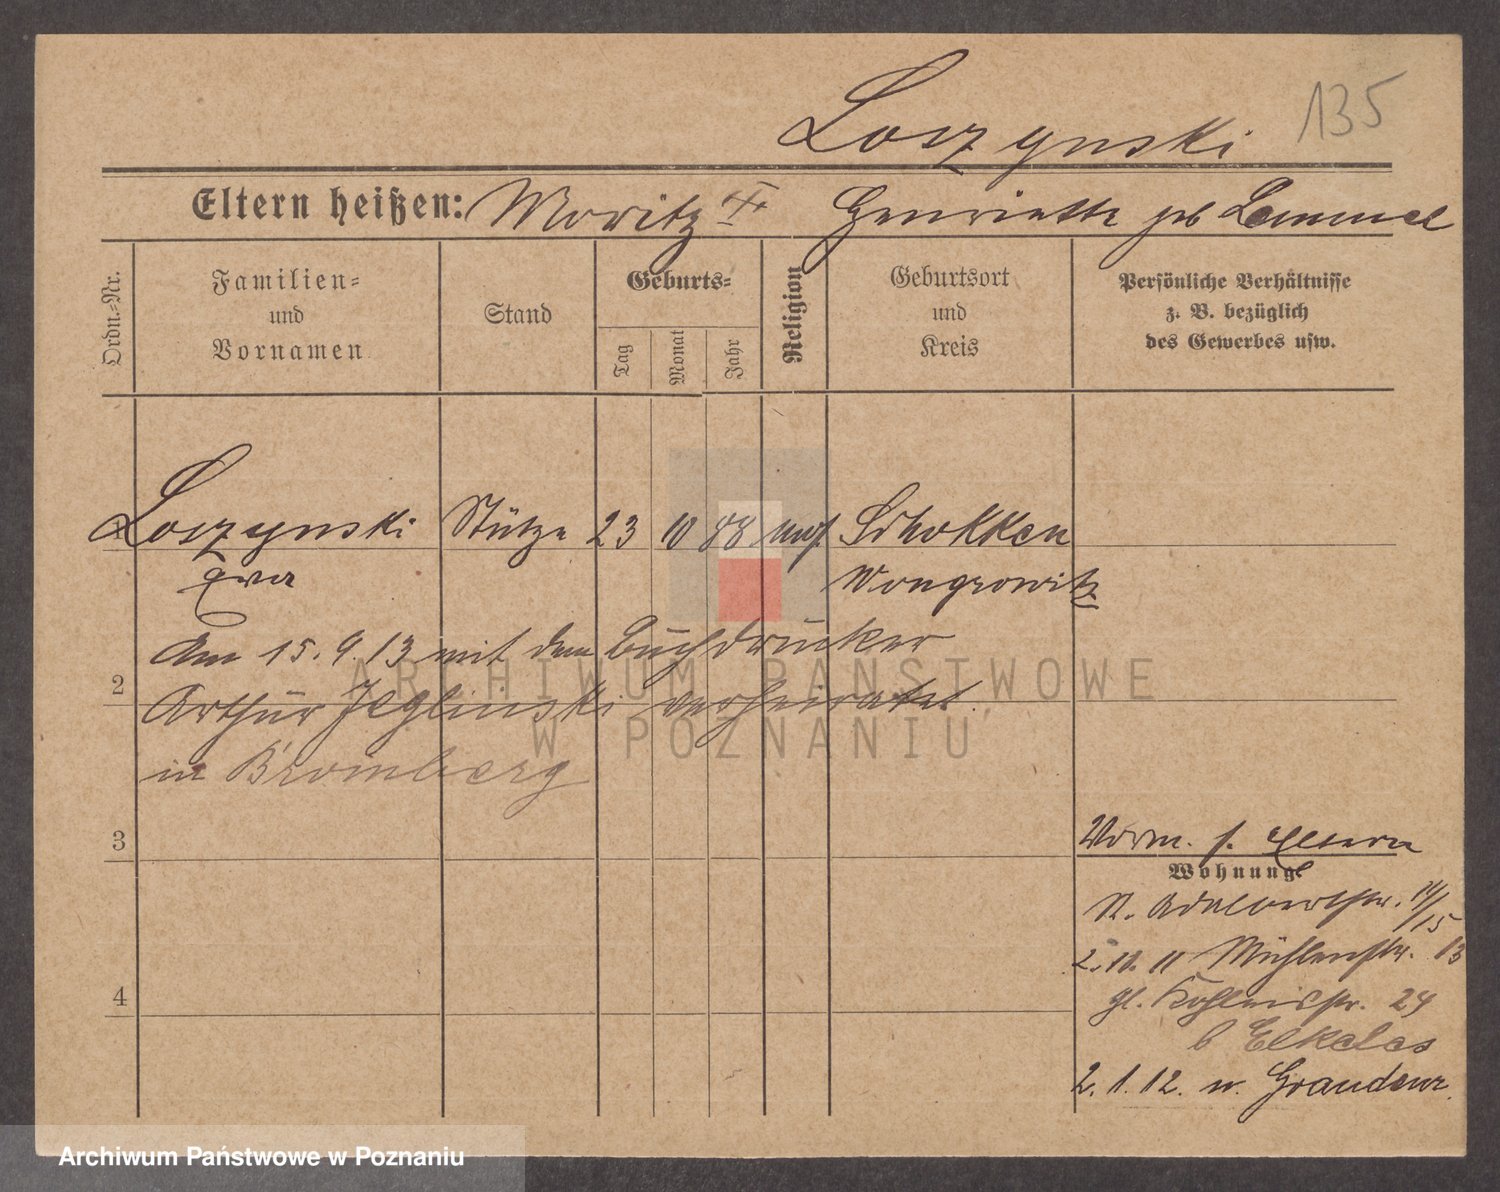 Loszynski 135
Eltern heißen: Moritz Henriette geb Lemmel
Ordn.-Nr.
Familien-
und
Vornamen
Stand
Geburts-
Tag
Monat
Jahr
Religion
Geburtsort
und
Kreis
Persönliche Verhältnisse
z. B. bezüglich
des Gewerbes usw.
Loszynski Stütze 23 10 88 mos Schokken
Eva Wongrowitz
Am 15. 9. 13 mit dem Buchdrucker
2
Arthur Jeglinski verheiratet
in Bromberg
3
Vorm. s. Eltern
Wohnung:
St. Adalbertstr. 14/15
2. 10. 11 Mühlenstr. 13
gl. 24
b Elkeles
4
2. 1. 12. n. Graudenz
ARCHIWUM PAŃSTWOWE
W POZNANIU
Archiwum Państwowe w Poznaniu